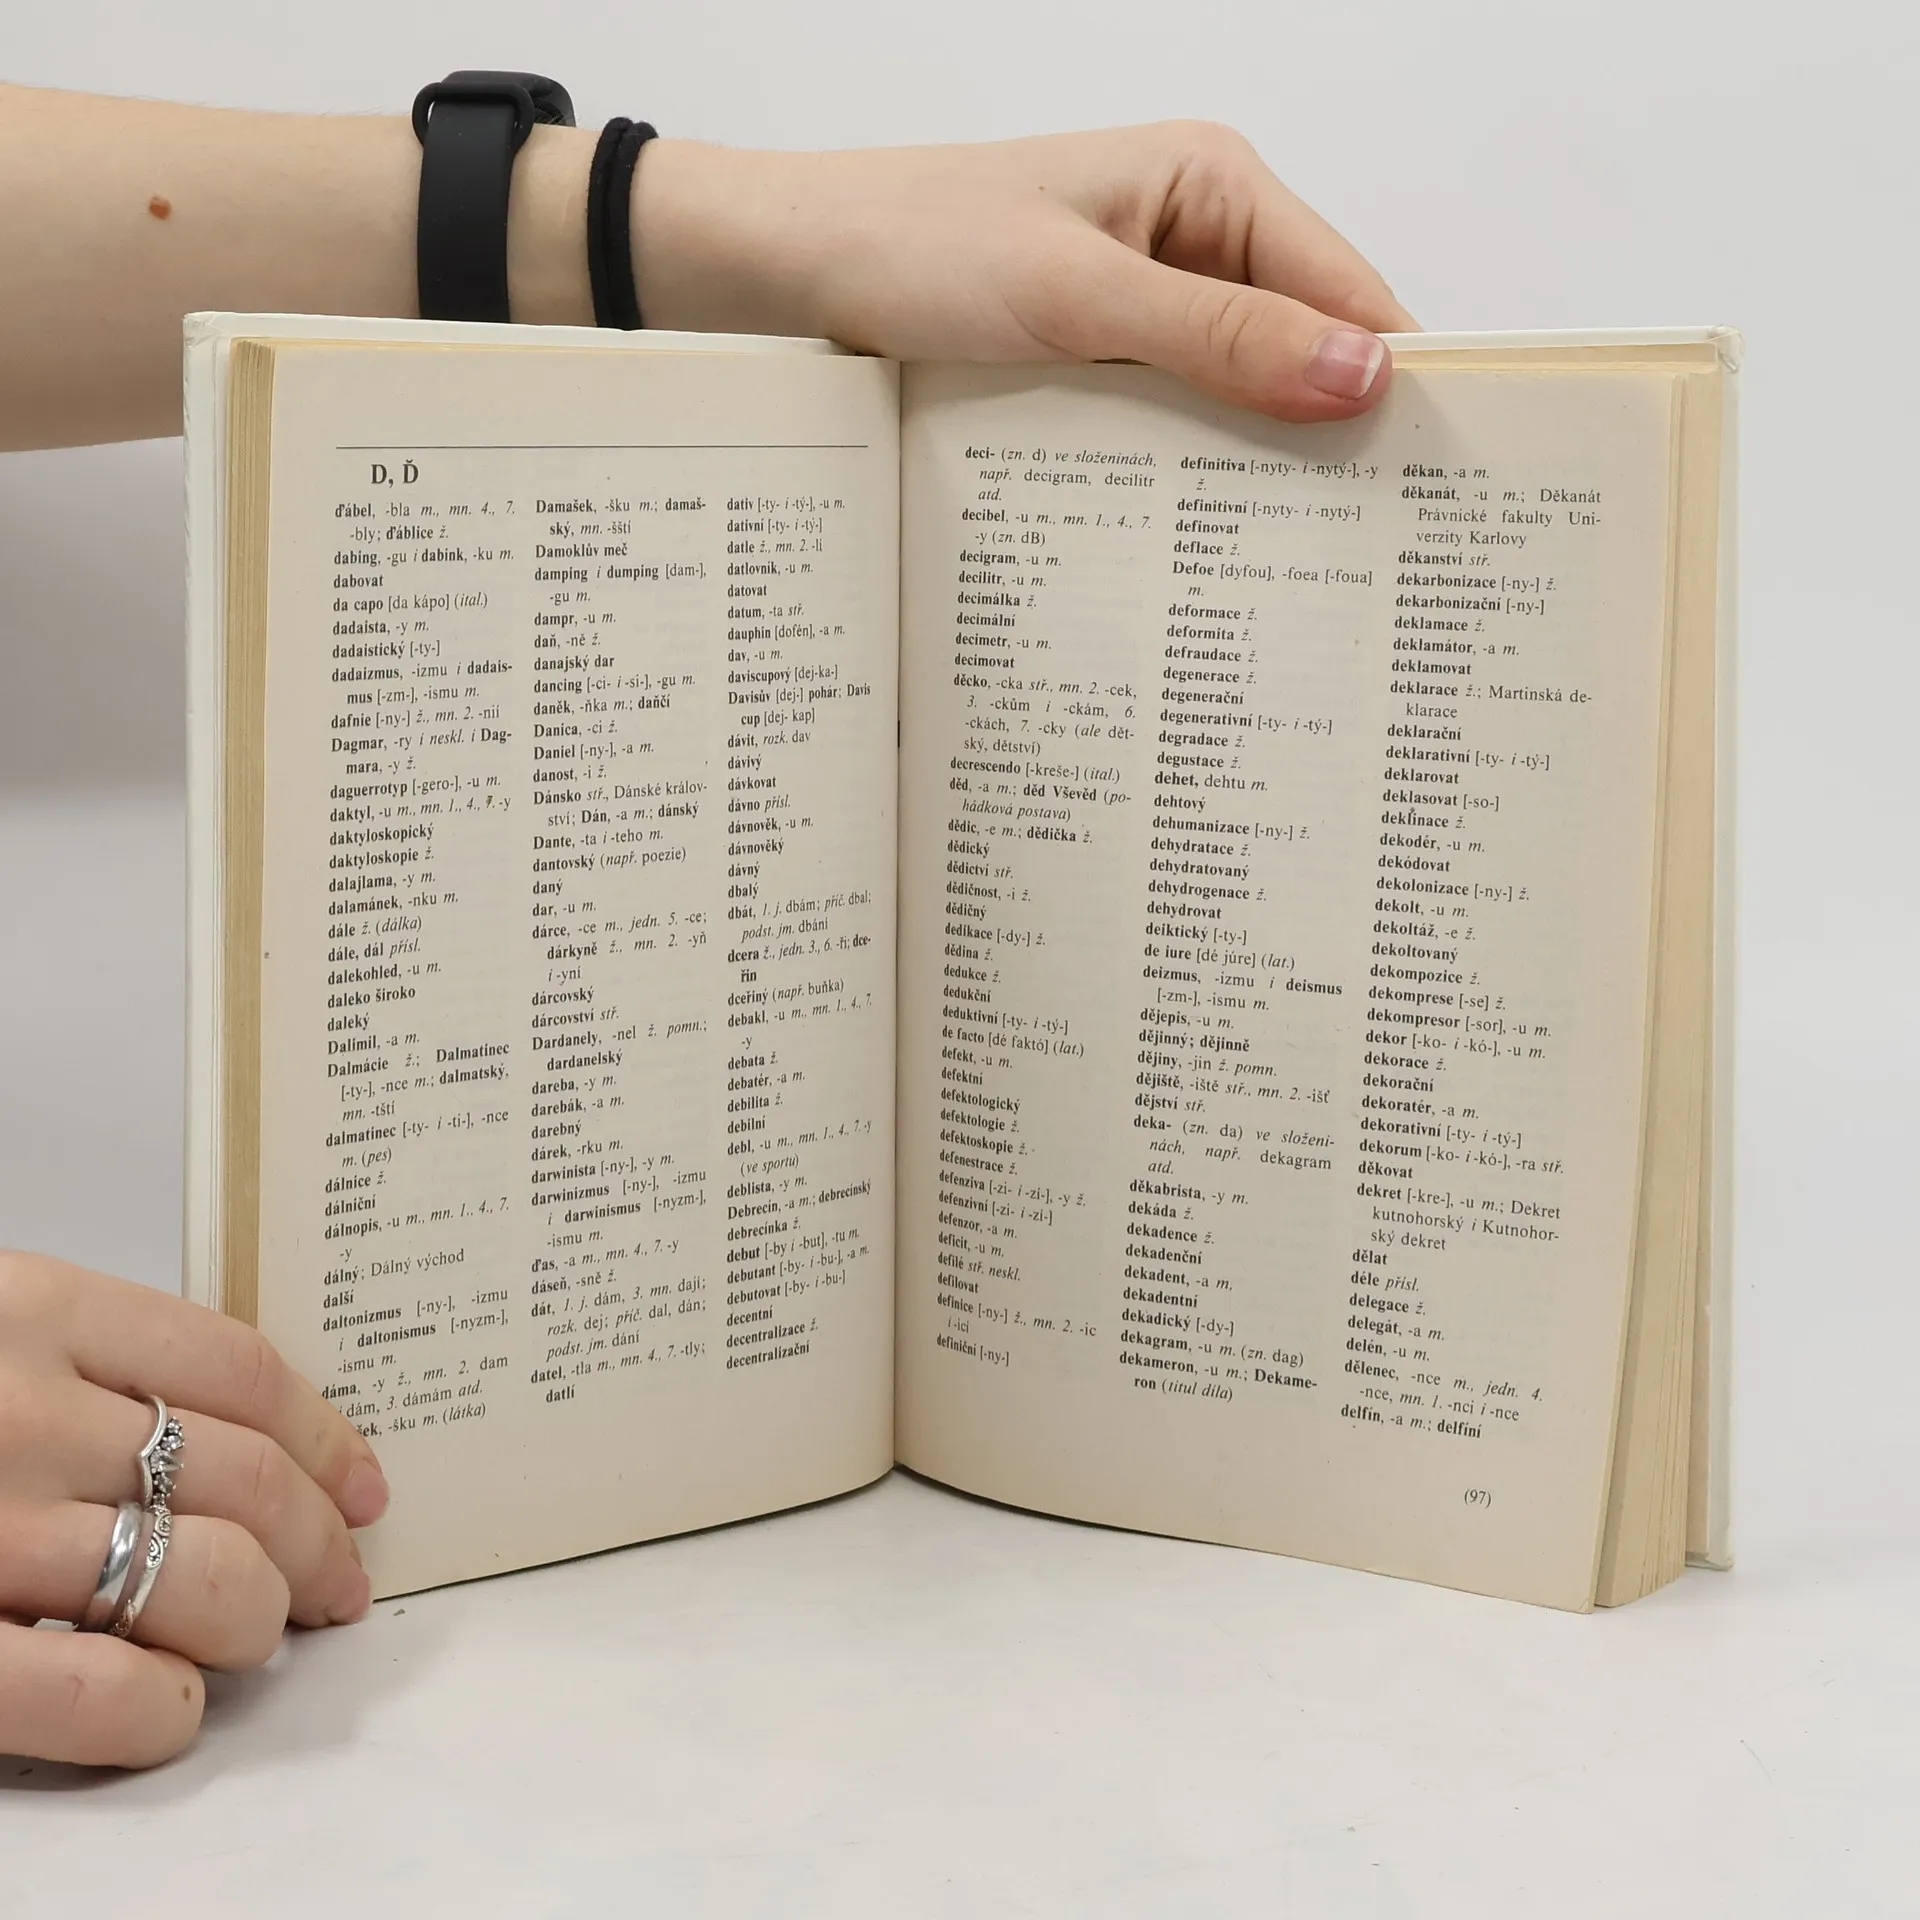 D, Ď
ďábel, -bla m., mn. 4., 7.
-bly; ďáblice ž.
dabing, -gu i dabink, -ku m.
dabovat
da capo [da kápo] (ital.)
dadaista, -y m.
dadaistický [-ty-]
dadaizmus, -izmu i dadais-
mus [-zm-], -ismu m.
dafnie [-ny-] ž., mn. 2. -nií
Dagmar, -ry i neskl. i Dag-
mara, -y ž.
daguerrotyp [-gero-], -u m.
daktyl, -u m., mn. 1., 4., 7. -y
daktyloskopický
daktyloskopie ž.
dalajlama, -y m.
dalamánek, -nku m.
dále ž. (dálka)
dále, dál přísl.
dalekohled, -u m.
daleko široko
daleký
Dalimil, -a m.
Dalmácie ž.; Dalmatinec
[-ty-], -nce m.; dalmatský,
mn. -tští
dalmatinec [-ty- i -ti-], -nce
m. (pes)
dálnice ž.
dálniční
dálnopis, -u m., mn. 1., 4., 7.
-y
dálný; Dálný východ
další
daltonizmus [-ny-], -izmu
i daltonismus [-nyzm-],
-ismu m.
dáma, -y ž., mn. 2. dam
i dám, 3. dámám atd.
-šku m. (látka)
Damašek, -šku m.; damaš-
ský, mn. -šští
Damoklův meč
damping i dumping [dam-],
-gu m.
dampr, -u m.
daň, -ně ž.
danajský dar
dancing [-ci- i -si-], -gu m.
daněk, -ňka m.; daňčí
Danica, -ci ž.
Daniel [-ny-], -a m.
danost, -i ž.
Dánsko stř., Dánské králov-
ství; Dán, -a m.; dánský
Dante, -ta i -teho m.
dantovský (např. poezie)
daný
dar, -u m.
dárce, -ce m., jedn. 5. -ce;
dárkyně ž., mn. 2. -yň
i -yní
dárcovský
dárcovství stř.
Dardanely, -nel ž. pomn.;
dardanelský
dareba, -y m.
darebák, -a m.
darebný
dárek, -rku m.
darwinista [-ny-], -y m.
darwinizmus [-ny-], -izmu
i darwinismus [-nyzm-],
-ismu m.
ďas, -a m., mn. 4., 7. -y
dáseň, -sně ž.
dát, 1. j. dám, 3. mn. dají;
rozk. dej; příč. dal, dán;
podst. jm. dání
datel, -tla m., mn. 4., 7. -tly;
datlí
dativ [-ty- i -tý-], -u m.
dativní [-ty- i -tý-]
datle ž., mn. 2. -lí
datlovník, -u m.
datovat
datum, -ta stř.
dauphin [dofén], -a m.
dav, -u m.
daviscupový [dej-ka-]
Davisův [dej-] pohár; Davis
cup [dej- kap]
dávit, rozk. dav
dávivý
dávkovat
dávno přísl.
dávnověk, -u m.
dávnověký
dávný
dbalý
dbát, 1. j. dbám; příč. dbal;
podst. jm. dbání
dcera ž., jedn. 3., 6. -ři; dce-
řin
dceřiný (např. buňka)
debakl, -u m., mn. 1., 4., 7.
-y
debata ž.
debatér, -a m.
debilita ž.
debilní
debl, -u m., mn. 1., 4., 7. -y
(ve sportu)
deblista, -y m.
Debrecín, -a m.; debrecínský
debrecínka ž.
debut [-by i -but], -tu m.
debutant [-by- i -bu-], -a m.
debutovat [-by- i -bu-]
decentní
decentralizace ž.
decentralizační
deci- (zn. d) ve složeninách,
např. decigram, decilitr
atd.
decibel, -u m., mn. 1., 4., 7.
-y (zn. dB)
decigram, -u m.
decilitr, -u m.
decimálka ž.
decimální
decimetr, -u m.
decimovat
děcko, -cka stř., mn. 2. -cek,
3. -ckům i -ckám, 6.
-ckách, 7. -cky (ale dět-
ský, dětství)
decrescendo [-kreše-] (ital.)
děd, -a m.; děd Vševěd (po-
hádková postava)
dědic, -e m.; dědička ž.
dědický
dědictví stř.
dědičnost, -i ž.
dědičný
dedikace [-dy-] ž.
dědina ž.
dedukce ž.
dedukční
deduktivní [-ty- i -tý-]
de facto [dé faktó] (lat.)
defekt, -u m.
defektní
defektologický
defektologie ž.
defektoskopie ž.
defenestrace ž.
defenziva [-zi- i -zí-], -y ž.
defenzivní [-zi- i -zí-]
defenzor, -a m.
deficit, -u m.
defilé stř. neskl.
defilovat
definice [-ny-] ž., mn. 2. -ic
i -icí
definiční [-ny-]
definitiva [-nyty- i -nytý-], -y
ž.
definitivní [-nyty- i -nytý-]
definovat
deflace ž.
Defoe [dyfou], -foea [-foua]
m.
deformace ž.
deformita ž.
defraudace ž.
degenerace ž.
degenerační
degenerativní [-ty- i -tý-]
degradace ž.
degustace ž.
dehet, dehtu m.
dehtový
dehumanizace [-ny-] ž.
dehydratace ž.
dehydratovaný
dehydrogenace ž.
dehydrovat
deiktický [-ty-]
de iure [dé júre] (lat.)
deizmus, -izmu i deismus
[-zm-], -ismu m.
dějepis, -u m.
dějinný; dějinně
dějiny, -jin ž. pomn.
dějiště, -iště stř., mn. 2. -išť
dějství stř.
deka- (zn. da) ve složeni-
nách, např. dekagram
atd.
děkabrista, -y m.
dekáda ž.
dekadence ž.
dekadenční
dekadent, -a m.
dekadentní
dekadický [-dy-]
dekagram, -u m. (zn. dag)
dekameron, -u m.; Dekame-
ron (titul díla)
děkan, -a m.
děkanát, -u m.; Děkanát
Právnické fakulty Uni-
verzity Karlovy
děkanství stř.
dekarbonizace [-ny-] ž.
dekarbonizační [-ny-]
deklamace ž.
deklamátor, -a m.
deklamovat
deklarace ž.; Martinská de-
klarace
deklarační
deklarativní [-ty- i -tý-]
deklarovat
deklasovat [-so-]
deklinace ž.
dekodér, -u m.
dekódovat
dekolonizace [-ny-] ž.
dekolt, -u m.
dekoltáž, -e ž.
dekoltovaný
dekompozice ž.
dekomprese [-se] ž.
dekompresor [-sor], -u m.
dekor [-ko- i -kó-], -u m.
dekorace ž.
dekorační
dekoratér, -a m.
dekorativní [-ty- i -tý-]
dekorum [-ko- i -kó-], -ra stř.
děkovat
dekret [-kre-], -u m.; Dekret
kutnohorský i Kutnohor-
ský dekret
dělat
déle přísl.
delegace ž.
delegát, -a m.
delén, -u m.
dělenec, -nce m., jedn. 4.
-nce, mn. 1. -nci i -nce
delfín, -a m.; delfíní
(97)